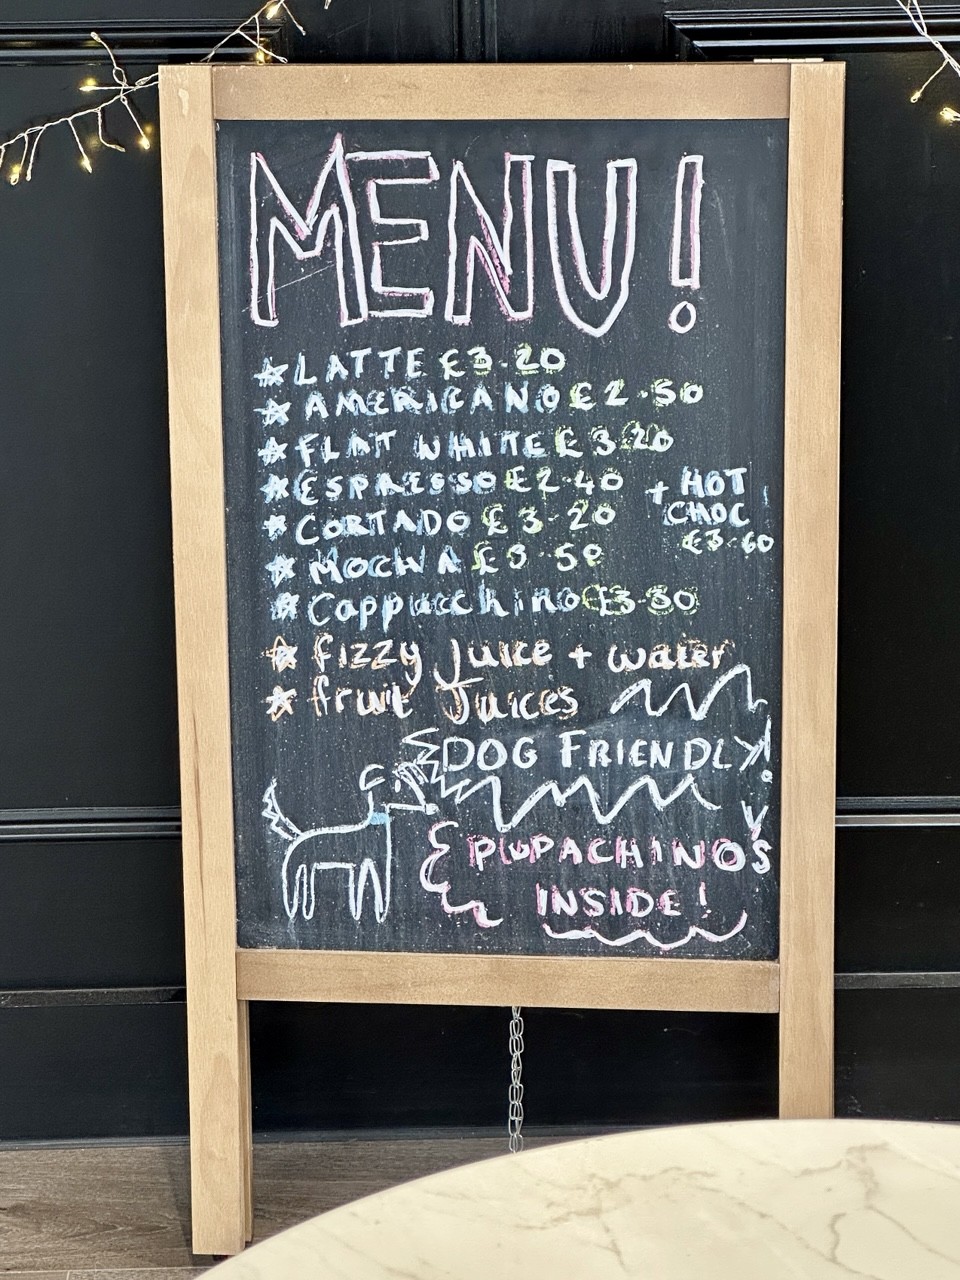 MENU!
☆ LATTE £3.20
☆ AMERICANO £2.50
☆ FLAT WHITE £3.20
☆ ESPRESSO £2.40
☆ CORTADO £3.20
☆ MOCHA £3.50
☆ Cappucchino £3.30
+ HOT
CHOC
£3.60
☆ fizzy Juice + water
☆ fruit Juices
DOG FRIENDLY!
PUPACHINO'S
INSIDE!